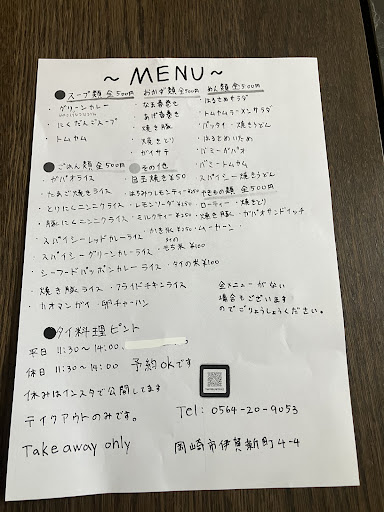 ~ MENU ~
●スープ類 全500円
・グリーンカレー
・にくだんごスープ
・トムヤム
おかず類 全700円
・なま春巻き
・あげ春巻き
・焼き豚
・焼きとり
・ガイサテ
めん類 全500円
・はるさめサラダ
・トムヤムラーメンサラダ
・パッタイ・焼きうどん
・はるさめいため
・バミーガパオ
・バミートムヤム
・スパイシー焼きうどん
●ごはん類 全500円
・ガパオライス
・たまご焼きライス
・とりにくニンニクライス
・豚にくニンニクライス
・スパイシーレッドカレーライス
・スパイシーグリーンカレーライス
・シーフードパッポンカレーライス
・焼き豚ライス・フライドチキンライス
・カオマンガイ・卵チャーハン
●その他
目玉焼き¥50
・はちみつレモンティー¥250
・レモンソーダ¥150
・ミルクティー¥250
・かき氷¥250
・タイのもち米¥100
・タイの米¥100
やきもの類 全500円
・ローティー・焼きとり
・焼き豚・ガパオサンドイッチ
・ムーヤーン
全メニューがない
場合もございます
のでごりょうしょうください。
●タイ料理ピント
平日 11:30~14:00
休日 11:30~14:00 予約okです
休みはインスタで公開してます
テイクアウトのみです。
Take away only
Tel: 0564-20-9053
岡崎市伊賀新町4-4